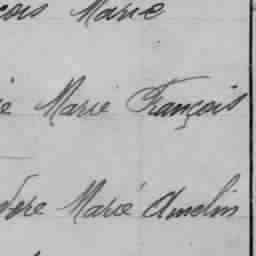 çois Marie
ie Marie François
dore Marie Amelin